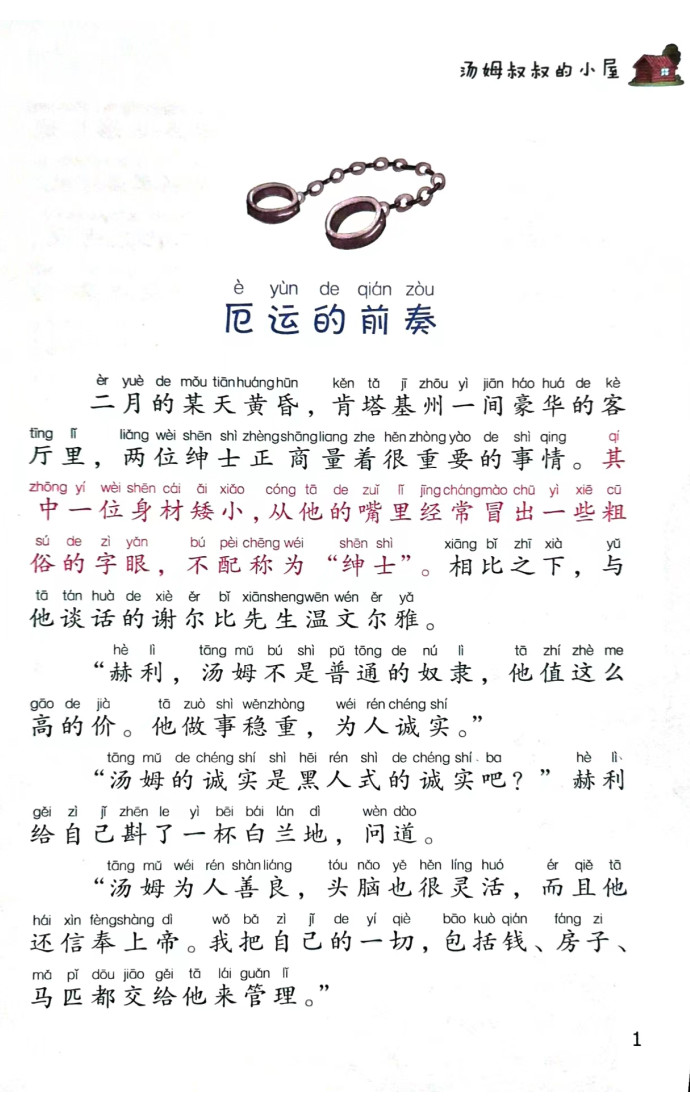 汤姆叔叔的小屋
è yùn de qián zòu
厄运的前奏
èr yuè de mǒu tiān huáng hūn kěn tǎ jī zhōu yì jiān háo huá de kè
二月的某天黄昏，肯塔基州一间豪华的客
tīng lǐ liǎng wèi shēn shì zhèng shāng liang zhe hěn zhòng yào de shì qing qí
厅里，两位绅士正商量着很重要的事情。其
zhōng yí wèi shēn cái ǎi xiǎo cóng tā de zuǐ lǐ jīng cháng mào chū yì xiē cū
中一位身材矮小，从他的嘴里经常冒出一些粗
sú de zì yǎn bú pèi chēng wéi shēn shì xiāng bǐ zhī xià yǔ
俗的字眼，不配称为“绅士”。相比之下，与
tā tán huà de xiè ěr bǐ xiān sheng wēn wén ěr yǎ
他谈话的谢尔比先生温文尔雅。
hè lì tāng mǔ bú shì pǔ tōng de nú lì tā zhí zhè me
“赫利，汤姆不是普通的奴隶，他值这么
gāo de jià tā zuò shì wěn zhòng wéi rén chéng shí
高的价。他做事稳重，为人诚实。”
tāng mǔ de chéng shí shì hēi rén shì de chéng shí ba hè lì
“汤姆的诚实是黑人式的诚实吧？”赫利
gěi zì jǐ zhēn le yì bēi bái lán dì wèn dào
给自己斟了一杯白兰地，问道。
tāng mǔ wéi rén shàn liáng tóu nǎo yě hěn líng huó ér qiě tā
“汤姆为人善良，头脑也很灵活，而且他
hái xìn fèng shàng dì wǒ bǎ zì jǐ de yí qiè bāo kuò qián fáng zi
还信奉上帝。我把自己的一切，包括钱、房子、
mǎ pǐ dōu jiāo gěi tā lái guǎn lǐ
马匹都交给他来管理。”
1